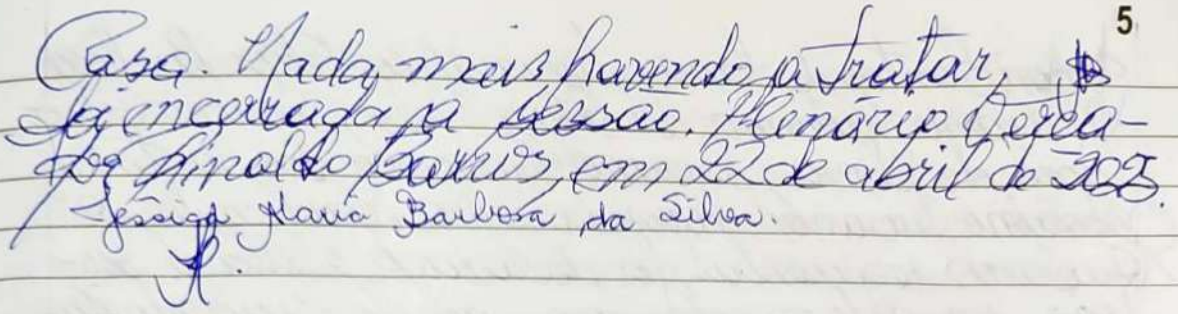 5
Casa. Nada mais havendo a tratar,
foi encerrada a sessão. Plenário Verea-
dor Rinaldo Barros, em 22 de abril de 2025.
Jéssica Maria Barbosa da Silva.